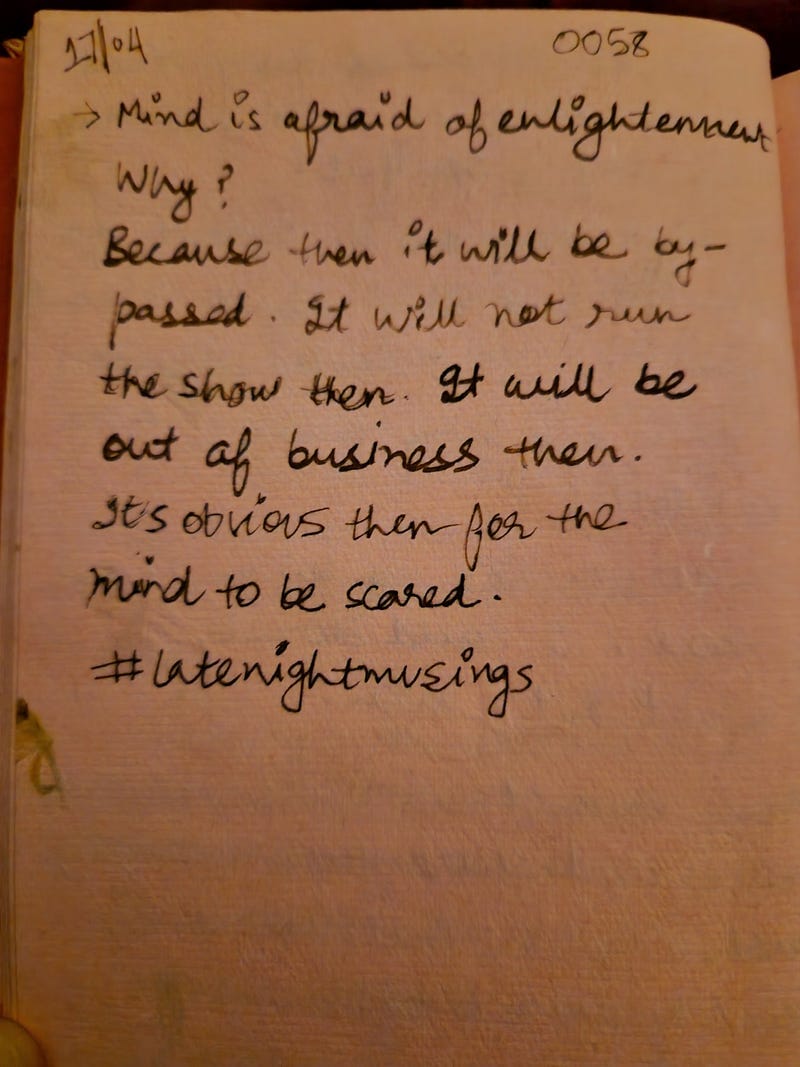 17/04 0058
→ Mind is afraid of enlightenment
Why?
Because then it will be by-
passed. It will not run
the show then. It will be
out of business then.
It's obvious then for the
mind to be scared.
#latenightmusings